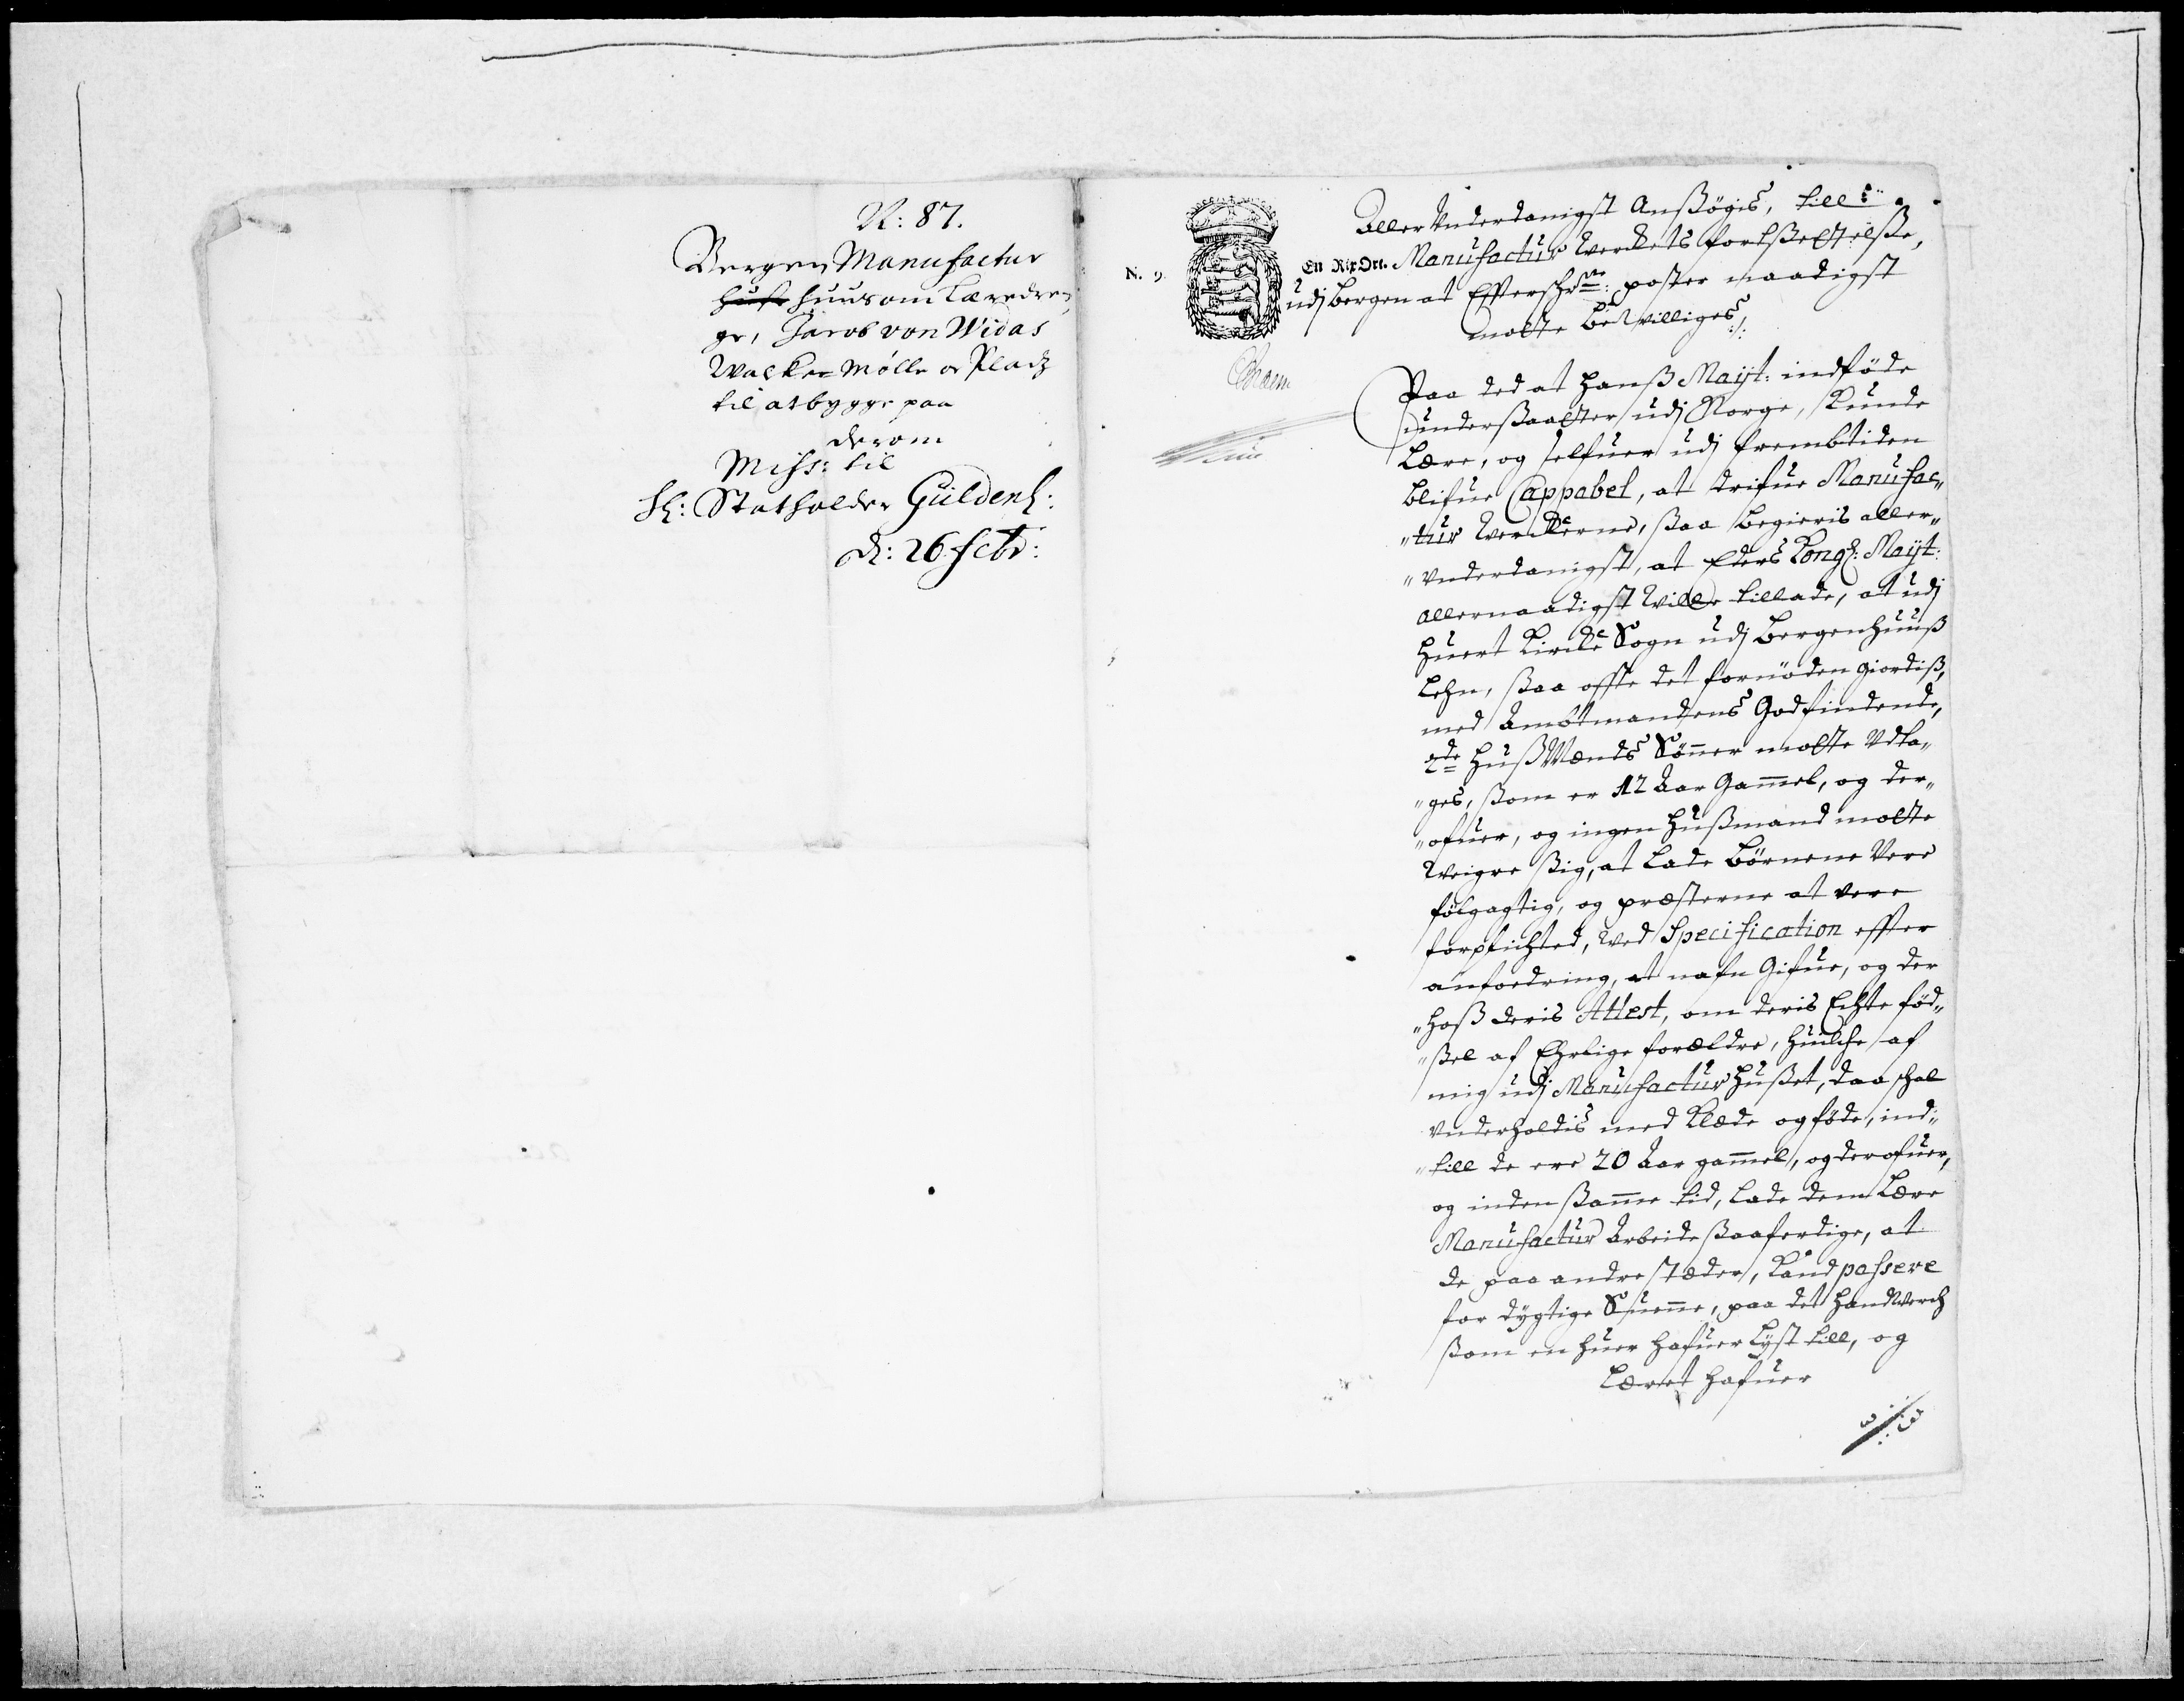 N: 87.
Bergen Manufactur
huß huus om Læredren
ge, Jacob von Widas
Walke Mølle oc Pladz
til at bygge paa
derom
Miss: til
H: Statholder Güldenl:
d: 26 febr:
N. 9.
En Rix Ort.
Aller Underdanigst Ansßøgis, till
Manufactur Werckets fortsßettelsße,
udj Bergen at Effterschrne: poster naadigst
motte bewilliges ./.
Paa ded at Hanß Mayt: indföde
underßaatter udj Norge, kunde
Lære, og selfuer udj frembtiden
blifue Cappabel, at drifue Manufac„
„tur Werckerne, ßaa begieris aller„
„underdanigst, at Eders Kongl: Mayt:
allernaadigst wille tillade, at udj
huert Kircke Sogn udj Bergenhuuß
Lehn, ßaa offte det fornöden giordiß,
med Ambtmandens Godfindende,
2de HußMænds Sönner motte Udta„
„ges, ßom er 12 Aar Gammel, og der„
„ofuer, og ingen Hußmand motte
weigre ßig, at lade Börnene Vere
fölgagtig, og præsterne at vere
forplichted, wed Specification effter
anfordring, at nafn Gifue, og der
„hoß deris Attest, om deris Echte fød„
„ßel af Ehrlige forældre, huilche af
mig udj Manufactur Hußet, daa schal
underholdis med Klæde og föde, ind„
„till de ere 20 Aar gammel, og derofuer,
og inden ßamme tid, lade dem Lære
Manufactur Arbeide ßaaferdige, at
de paa andre stæder, kand passere
for dygtige Suenne, paa det Handwerch
ßom en huer hafuer Lyst till, og
Læret hafuer